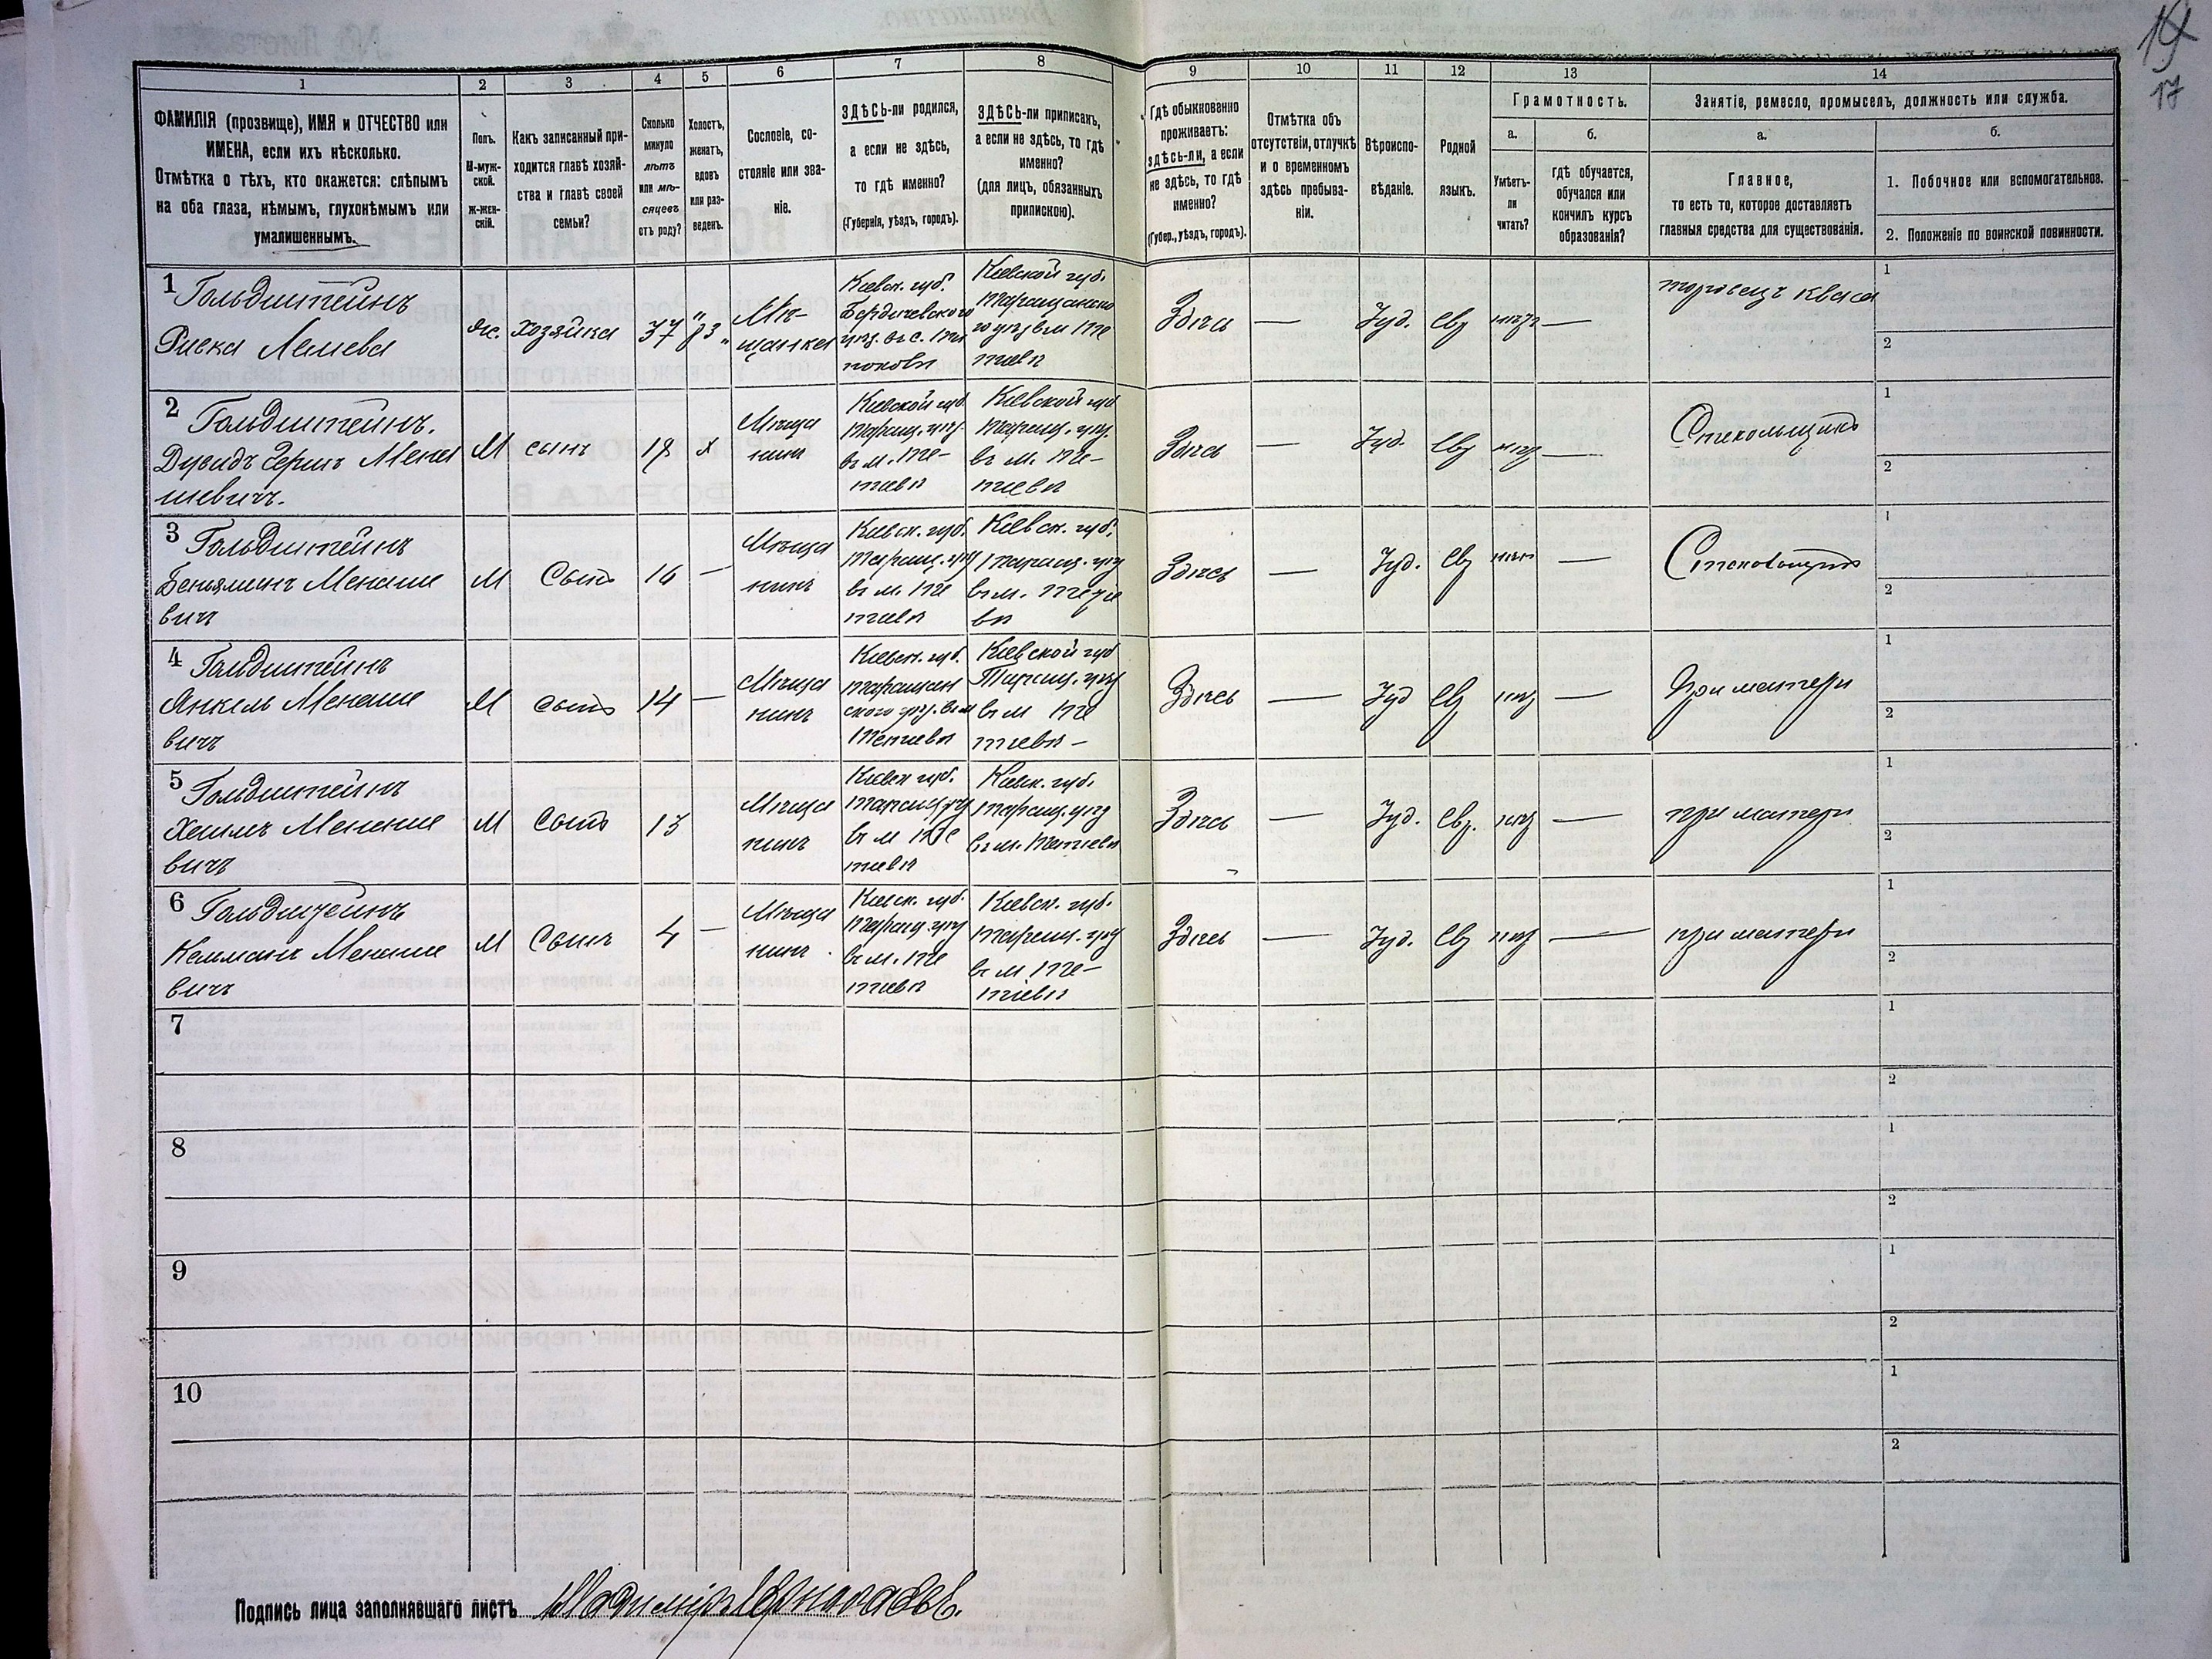 19
17
1
2
3
4
5
6
7
8
9
10
11
12
13
14
ФАМИЛІЯ (прозвище), ИМЯ и ОТЧЕСТВО или
ИМЕНА, если ихъ нѣсколько.
Отмѣтка о тѣхъ, кто окажется: слѣпымъ
на оба глаза, нѣмымъ, глухонѣмымъ или
умалишеннымъ.
Полъ.
М-муж-
ской.
Ж-жен-
скій.
Какъ записанный при-
ходится главѣ хозяй-
ства и главѣ своей
семьи?
Сколько
минуло
лѣтъ
или мѣ-
сяцевъ
отъ роду?
Холостъ,
женатъ,
вдовъ
или раз-
веденъ.
Сословіе, со-
стояніе или зва-
ніе.
ЗДѢСЬ-ли родился,
а если не здѣсь,
то гдѣ именно?
(Губернія, уѣздъ, городъ).
ЗДѢСЬ-ли приписанъ,
а если не здѣсь, то гдѣ
именно?
(для лицъ, обязанныхъ
припискою).
Гдѣ обыкновенно
проживаетъ:
здѣсь-ли, а если
не здѣсь, то гдѣ
именно?
(Губер., уѣздъ, городъ).
Отмѣтка объ
отсутствіи, отлучкѣ
и о временномъ
здѣсь пребыва-
ніи.
Вѣроиспо-
вѣданіе.
Родной
языкъ.
Грамотность.
а.
б.
Умѣетъ-
ли
читать?
гдѣ обучается,
обучался или
кончилъ курсъ
образованія?
Занятіе, ремесло, промыселъ, должность или служба.
а.
б.
Главное,
то есть то, которое доставляетъ
главныя средства для существованія.
1. Побочное или вспомогательное.
2. Положеніе по воинской повинности.
1 Гольдштейнъ
Риска Лейшева
жс.
хозяйка
37
Мѣ-
щанка
Кіевск. губ.
Бердичевского
Кіевской губ.
Таращанско
Здѣсь
—
Іуд.
Евр
нѣтъ
—
торговецъ кваса
1
2
2 Гольдштейнъ.
Дувидъ Гершъ Мена
шевичъ.
М
сынъ
18
х
Мѣща
нинъ
Кіевской губ
Таращ. уѣз.
въ м. Те-
тіевѣ
Кіевской губ
Таращ. уѣз.
въ м. Те-
тіевѣ
Здѣсь
—
Іуд.
Евр
нѣт
—
Стекольщикъ
1
2
3 Гольдштейнъ
Беньяминъ Менаше
вичъ
М
Сынъ
16
—
Мѣща
нинъ
Кіевск. губ.
Таращ. уѣз
въ м. Те
тіевѣ
Кіевск. губ.
Таращ. уѣз
въ м. Тетіе
вѣ
Здѣсь
—
Іуд.
Евр
нѣт
—
Стекольщикъ
1
2
4 Гольдштейнъ
Янкель Менаше
вичъ
М
Сынъ
14
—
Мѣща
нинъ
Кіевск. губ.
Таращан
ского уѣз. въ м
Тетіевѣ
Кіевской губ
Таращ. уѣз
въ м Те
тіевѣ —
Здѣсь
—
Іуд
Евр
нѣт
—
При матери
1
2
5 Гольдштейнъ
Хаимъ Менаше
вичъ
М
Сынъ
13
Мѣща
нинъ
Кіевск губ.
Таращ уѣз
въ м Те
тіевѣ
Кіевск. губ.
Таращ. уѣз
въ м. Тетіевѣ
Здѣсь
—
Іуд.
Евр.
нѣт
—
при матери
1
2
6 Гольдштейнъ
Кельманъ Менаше
вичъ
М
Сынъ
4
—
Мѣща
нинъ.
Кіевск. губ.
Таращ. уѣз
въ м. Те
тіевѣ
Кіевск. губ.
Таращ. уѣз
въ м Те-
тіевѣ
Здѣсь
—
Іуд.
Евр
нѣт
—
при матери
1
2
7
1
2
8
1
2
9
1
2
10
1
2
Подпись лица заполнявшаго листъ